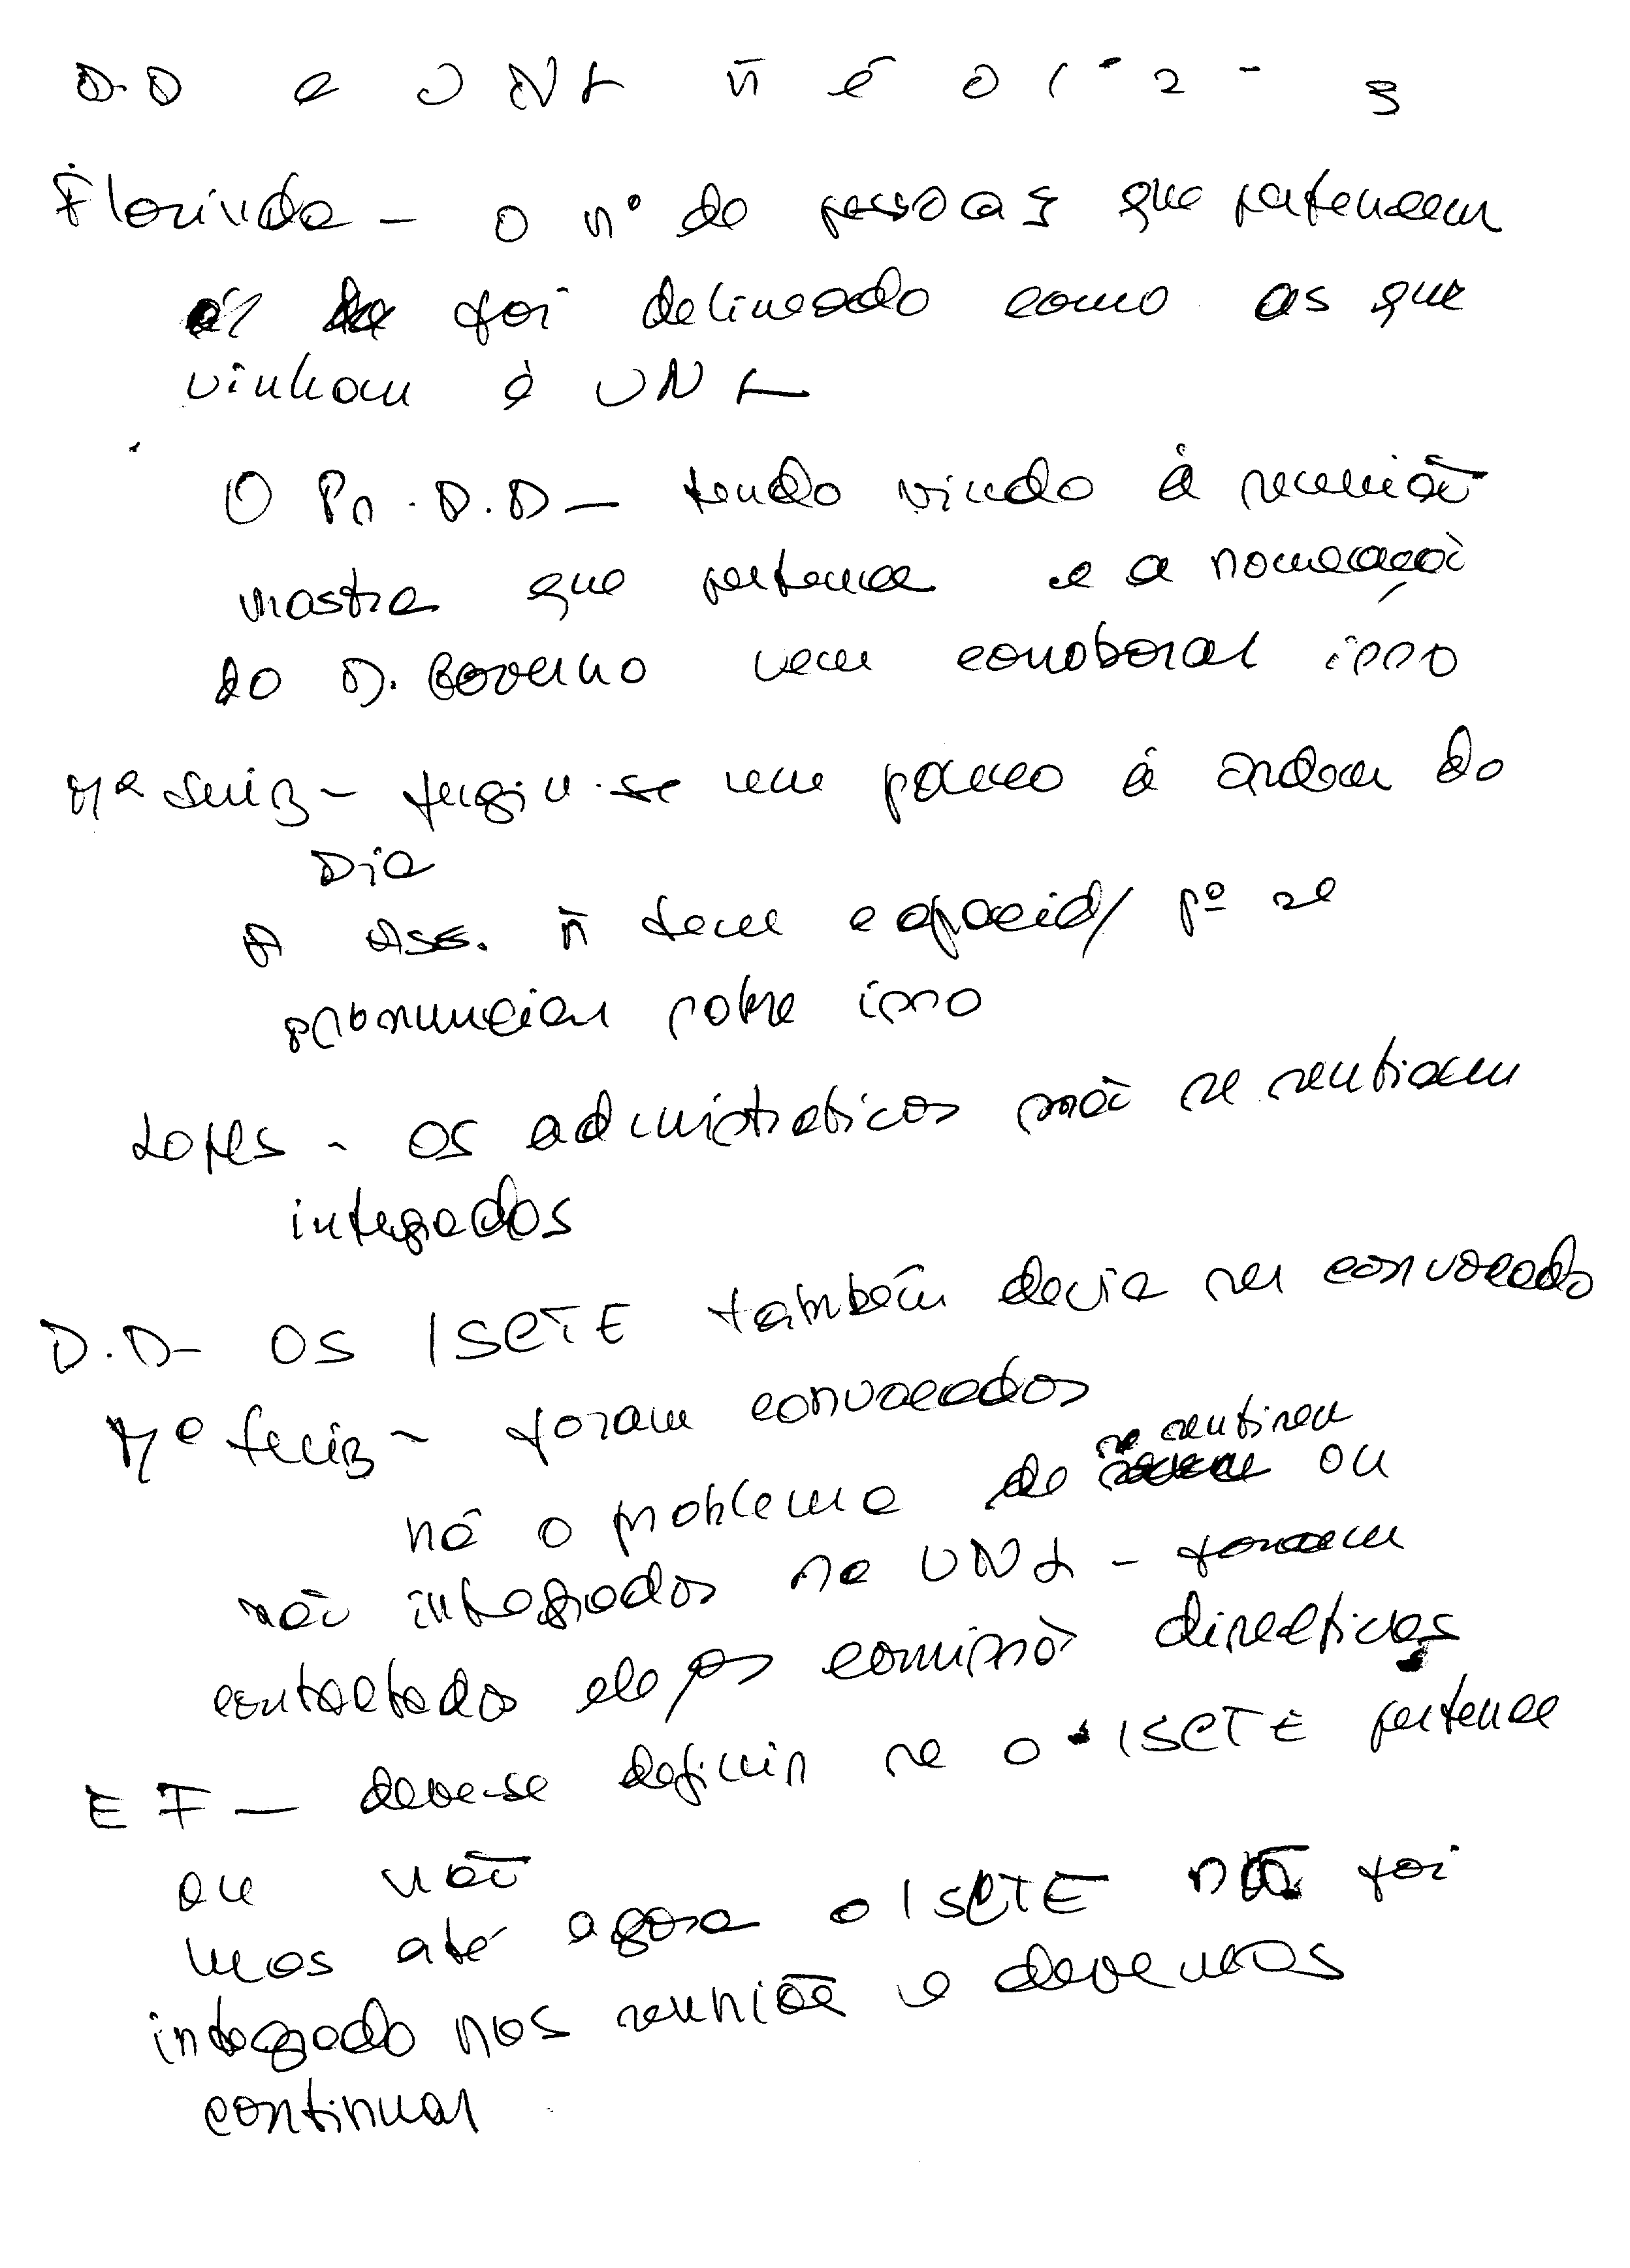 D.D a UNL ñ é o 1º 2º 3
Florinda - o nº de pessoas que pertencem
foi delineado como as que
vinham à UNL
O Pr. D.D - tendo vindo à reunião
mostra que pertence e a nomeação
do D. Governo vem corroborar isso
Mª Luiza - fugiu-se um pouco à ordem do
Dia
A Ass. ñ tem capacid/ pª se
pronunciar sobre isso
Lopes - os admistrativos não se sentiam
integrados
D.D - OS ISCTE também devia ser convocado
Mª Luiza - foram convocados
se sentirem
há o problema de ou
não integrados na UNL - foram
contactados as comissão directivas
E F - deve-se definir se o ISCTE pertence
ou não
mas até agora o ISCTE não foi
integrado nas reuniõe e devemos
continuar